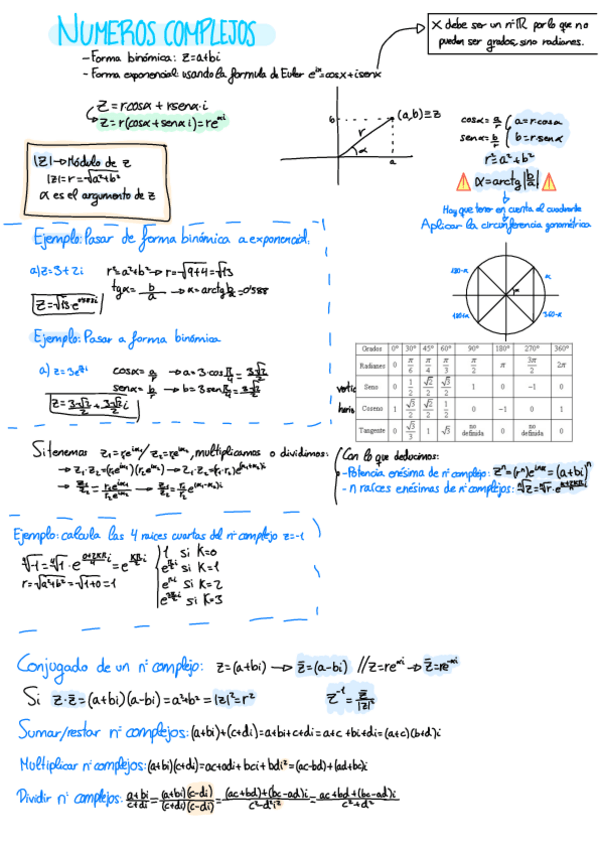 NUMEROS COMPLEJOS
X debe ser un nº ℝ por lo que no
pueden ser grados, sino radianes.
- Forma binómica: z=a+bi
- Forma exponencial: usando la formula de Euler e^ix=cosx+isenx
z=rcosα+rsenα·i
z=r(cosα+senαi)=re^αi
b
r
α
a
(a,b)≡z
cosα=a/r
a=r·cosα
senα=b/r
b=r·senα
r²=a²+b²
α=arctg|b/a|
Hay que tener en cuenta el cuadrante
Aplicar la circunferencia goniométrica
|z|→Módulo de z
|z|=r=√a²+b²
α es el argumento de z
Ejemplo: Pasar de forma binómica a exponencial:
a) z=3+2i
r²=a²+b²→r=√9+4=√13
tgα=b/a→α=arctg b/a=0'588
z=√13·e^0'588i
Ejemplo: Pasar a forma binómica
a) z=3e^π/4i
cosα=a/r→a=3·cosπ/4=3√2/2
senα=b/r→b=3senπ/4=3√2/2
z=3√2/2+3√2/2i
180-α
α
α
180+α
360-α
Grados 0º 30º 45º 60º 90º 180º 270º 360º
Radianes 0 π/6 π/4 π/3 π/2 π 3π/2 2π
Seno 0 1/2 √2/2 √3/2 1 0 −1 0
Coseno 1 √3/2 √2/2 1/2 0 −1 0 1
Tangente 0 √3/3 1 √3 no definida 0 no definida 0
Si tenemos z₁=re^iα₁/z₂=re^iα₂, multiplicamos o dividimos:
→z₁·z₂=(r₁e^iα₁)(r₂e^iα₂)→z₁·z₂=(r₁·r₂)e^(α₁+α₂)i
→z₁/z₂=r₁e^iα₁/r₂e^iα₂→z₁/z₂=r₁/r₂e^(α₁-α₂)i
Con lo que deducimos:
-Potencia enésima de nº complejo: zⁿ=(rⁿ)e^inα=(a+bi)ⁿ
-n raíces enésimas de nº complejos: ⁿ√z=ⁿ√r·e^α+2kπ/n i
Ejemplo: calcula las 4 raíces cuartas del nº complejo z=-1
⁴√-1=⁴√1·e^0+2kπ/4 i=e^kπ/2 i
r=√a²+b²=√1+0=1
1 si K=0
e^π/2i si K=1
e^πi si K=2
e^3π/2i si K=3
Conjugado de un nº complejo: z=(a+bi)→z̄=(a-bi) //z=re^αi→z̄=re^-αi
Si z·z̄=(a+bi)(a-bi)=a²+b²=|z|²=r²
z⁻¹=z̄/|z|²
Sumar/restar nº complejos: (a+bi)+(c+di)=a+bi+c+di=a+c+bi+di=(a+c)(b+d)i
Multiplicar nº complejos: (a+bi)(c+di)=ac+adi+bci+bdi²=(ac-bd)+(ad+bc)i
Dividir nº complejos: a+bi/c+di=(a+bi)(c-di)/(c+di)(c-di)=(ac+bd)+(bc-ad)i/c²-d²i²=ac+bd+(bc-ad)i/c²+d²